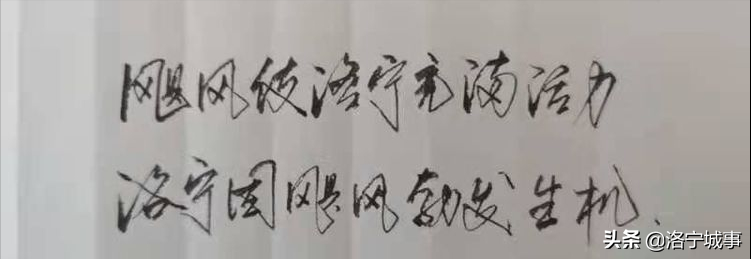 飓风使洛宁充满活力
洛宁因飓风勃发生机.
头条 @洛宁城事